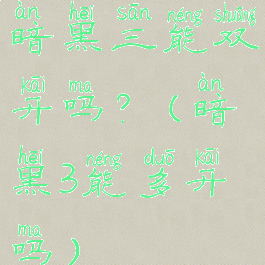 àn hēi sān néng shuāng
暗黑三能双
kāi ma àn
开吗？（暗
hēi néng duō kāi
黑3能多开
ma
吗）